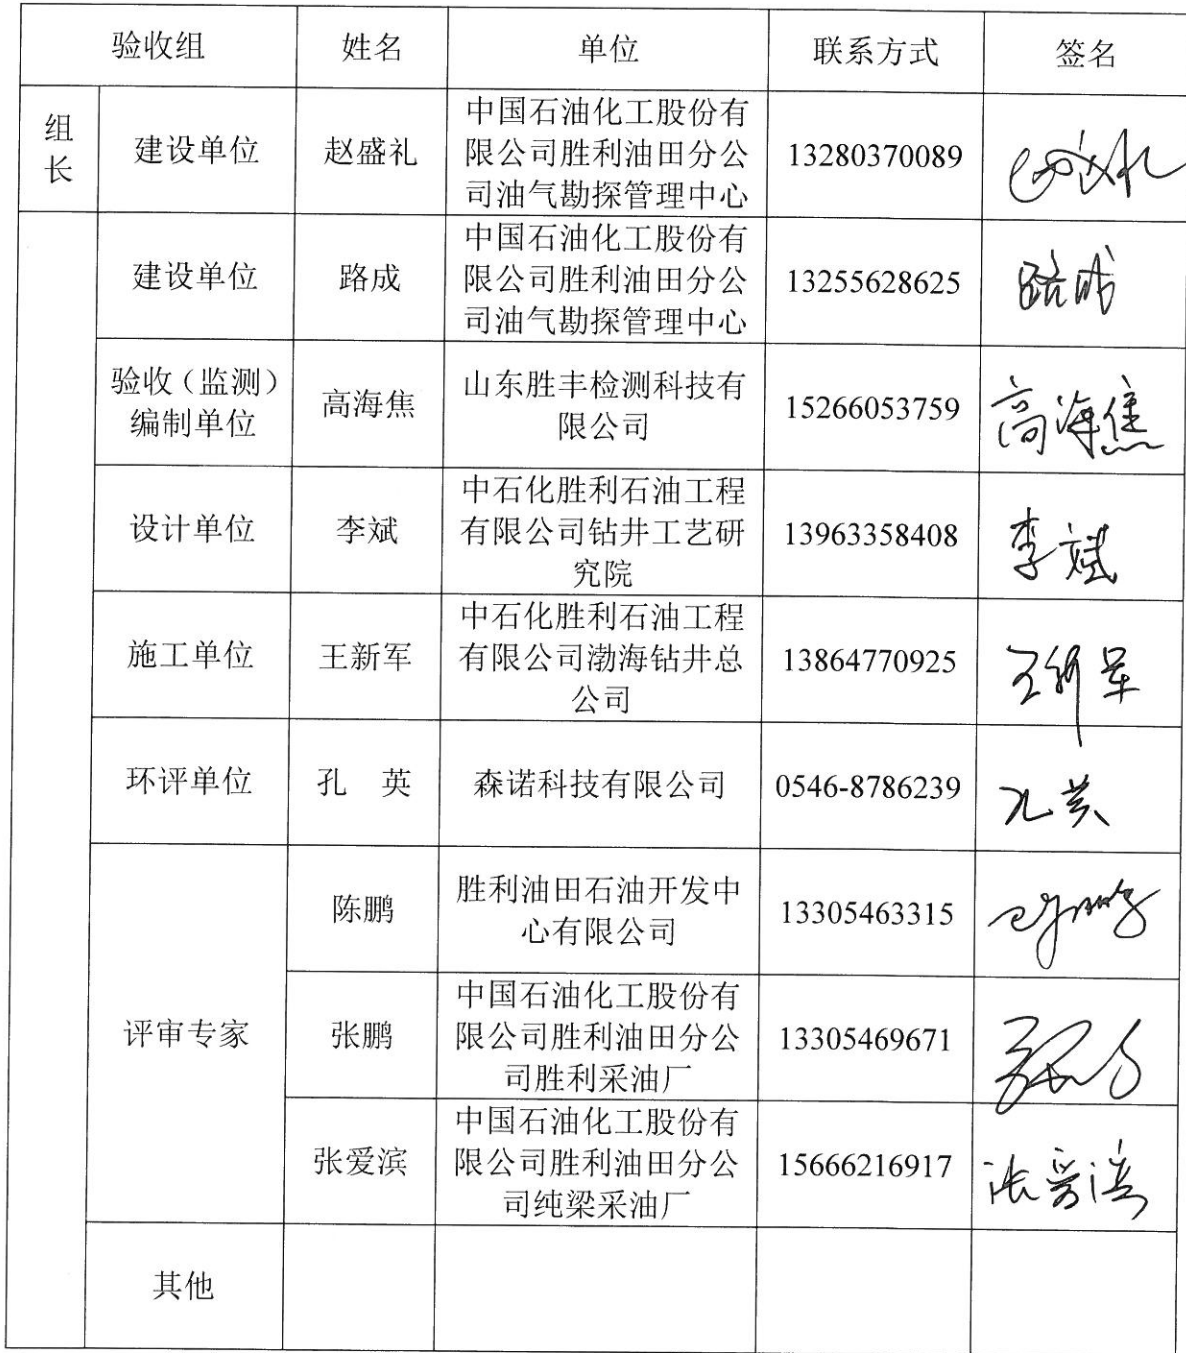 验收组 姓名 单位 联系方式 签名
组
长
建设单位 赵盛礼
中国石油化工股份有
限公司胜利油田分公
司油气勘探管理中心
13280370089
建设单位 路成
中国石油化工股份有
限公司胜利油田分公
司油气勘探管理中心
13255628625 路成
验收（监测）
编制单位
高海焦
山东胜丰检测科技有
限公司
15266053759 高海焦
设计单位 李斌
中石化胜利石油工程
有限公司钻井工艺研
究院
13963358408 李斌
施工单位 王新军
中石化胜利石油工程
有限公司渤海钻井总
公司
13864770925 王新军
环评单位 孔 英 森诺科技有限公司 0546-8786239 孔英
评审专家
陈鹏
胜利油田石油开发中
心有限公司
13305463315
张鹏
中国石油化工股份有
限公司胜利油田分公
司胜利采油厂
13305469671
张爱滨
中国石油化工股份有
限公司胜利油田分公
司纯梁采油厂
15666216917 张爱滨
其他